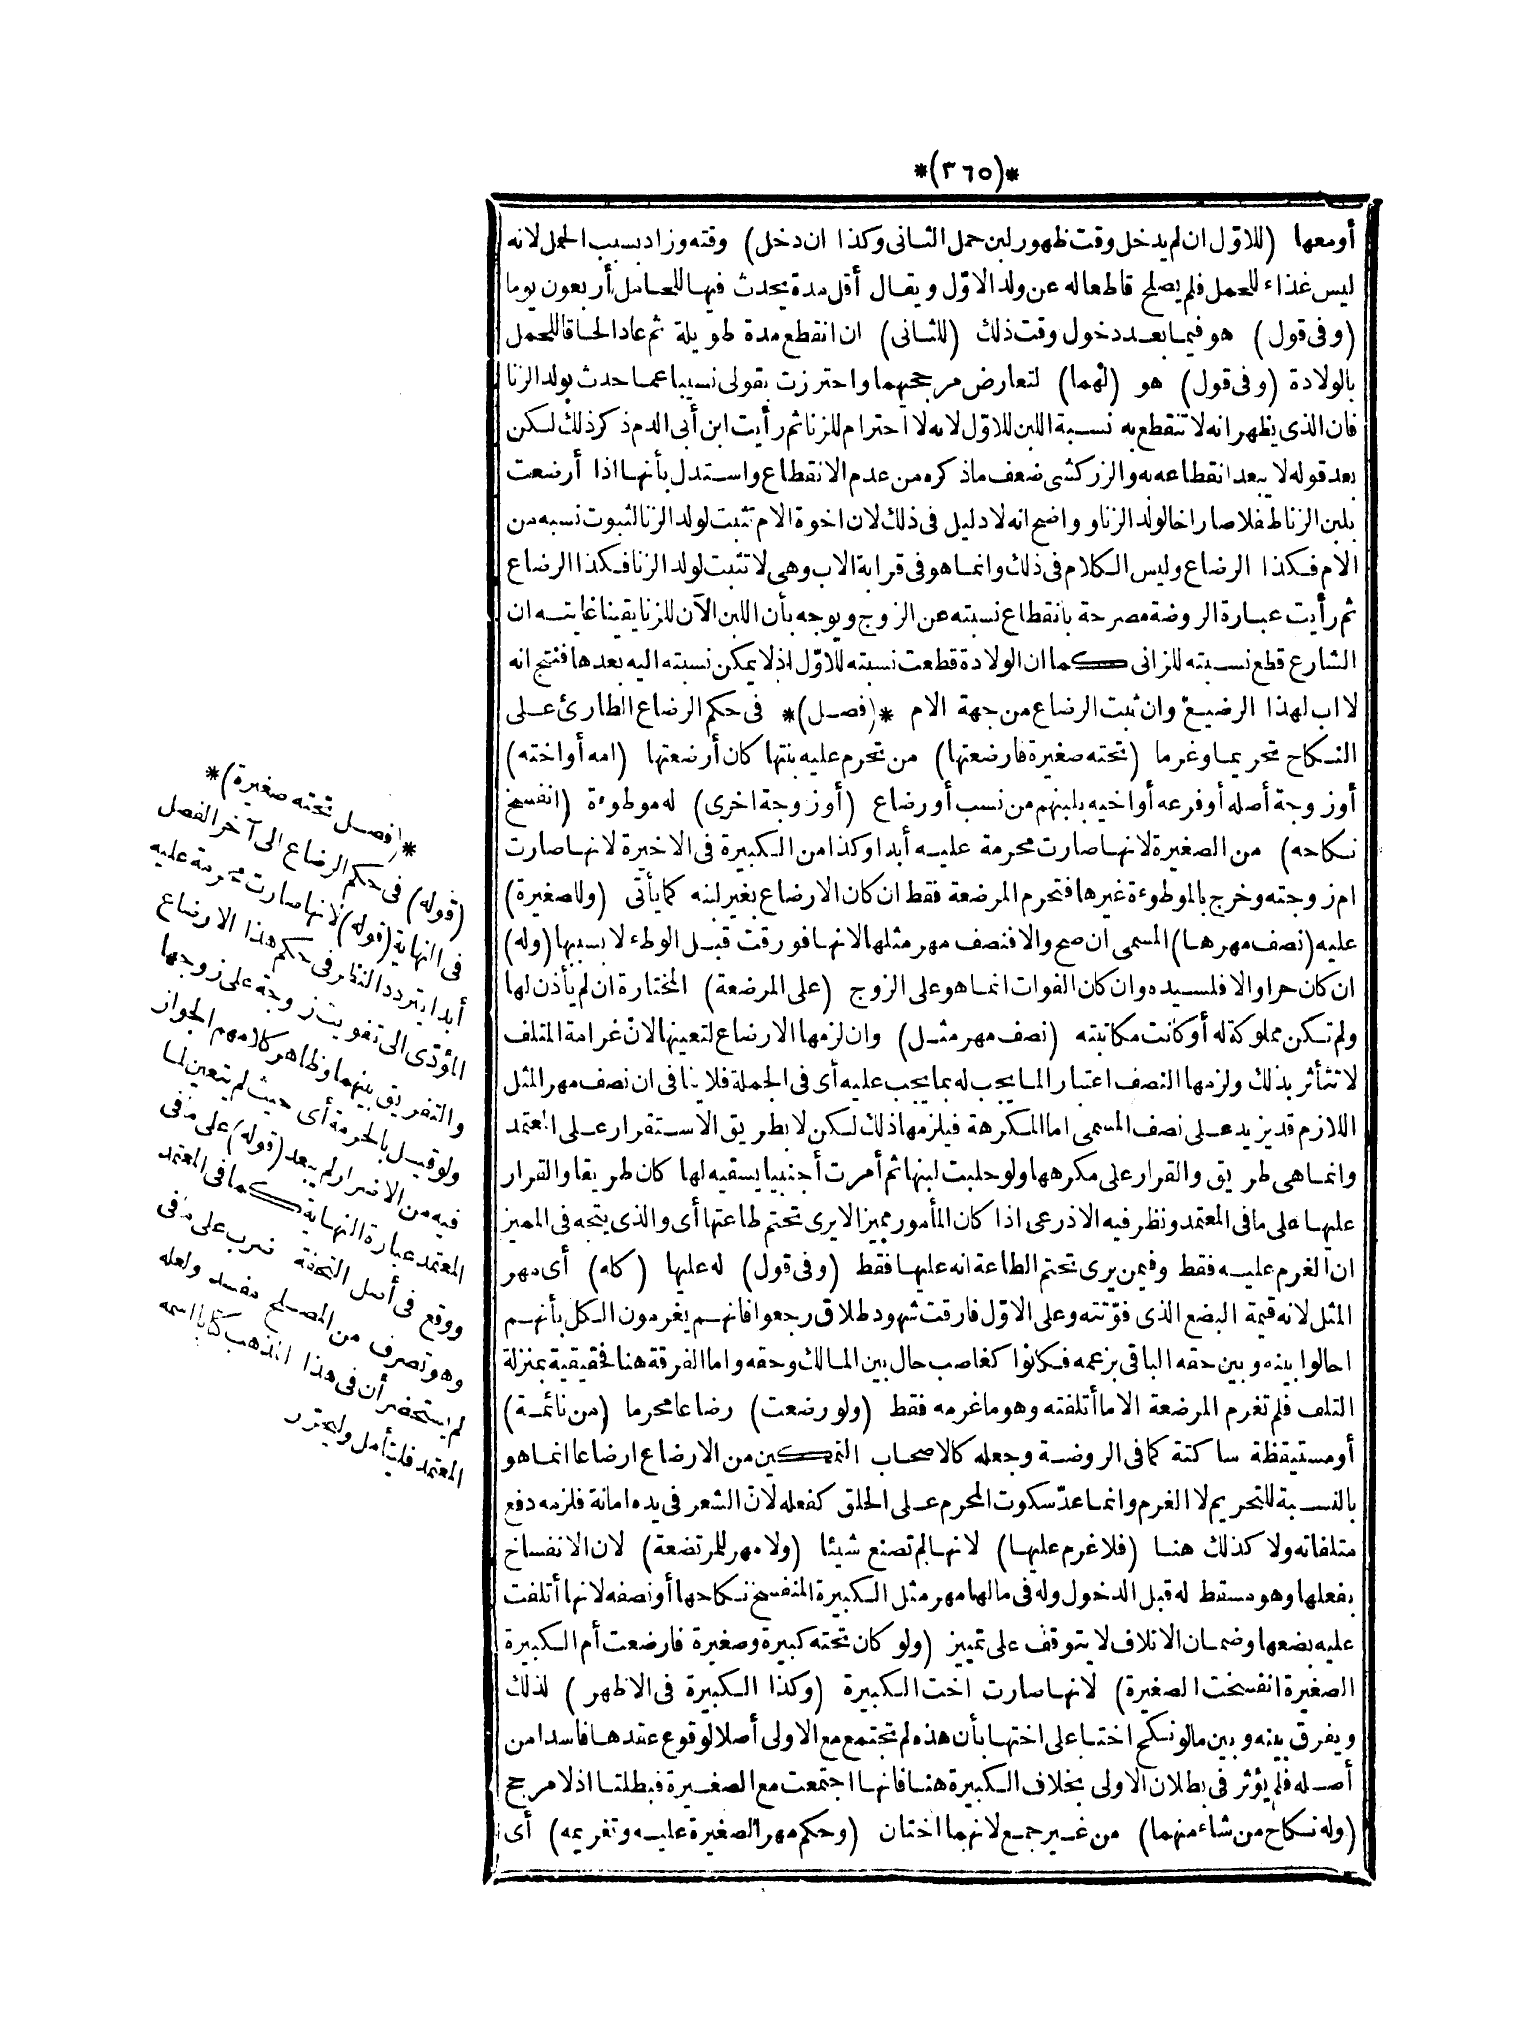 *(٣٦٥)*
أومعها (للاوّل ان لم يدخل وقت ظهور لبن حمل الثانى وكذا ان دخل) وقته وزاد بسبب الحمل لانه
ليس غذاء للحمل فلم يصلح قاطعاله عن ولد الاوّل ويقال أقل مدة يحدث فيها للحامل أربعون يوما
(وفى قول) هو فيما بعد دخول وقت ذلك (للثانى) ان انقطع مدة طويلة ثم عاد الحاقا للحمل
بالولادة (وفى قول) هو (لهما) لتعارض مرجحيهما واحترزت بقولى نسيبا عما حدث بولد الزنا
فان الذى يظهر انه لا تنقطع به نسبة اللبن للاوّل لانه لا احترام للزنا ثم رأيت ابن أبى الدم ذكر ذلك لكن
بعد قوله لا يبعد انقطاعه به والزركشى ضعف ماذكره من عدم الانقطاع واستدل بأنها اذا أرضعت
بلبن الزنا طفلا صار اخا لولد الزنا وواضح انه لا دليل فى ذلك لان اخوة الام تثبت لولد الزنا لثبوت نسبه من
الام فكذا الرضاع وليس الكلام فى ذلك وانما هو فى قرابة الاب وهى لا تثبت لولد الزنا فكذا الرضاع
ثم رأيت عبارة الروضة مصرحة بانقطاع نسبته عن الزوج ويوجه بأن اللبن الآن للزنا يقينا غايته ان
الشارع قطع نسبته للزانى كما ان الولادة قطعت نسبته للاوّل اذ لا يمكن نسبته اليه بعدها فنتج انه
لا اب لهذا الرضيع وان ثبت الرضاع من جهة الام *(فصل)* فى حكم الرضاع الطارئ على
النكاح تحريما وغرما (تحته صغيرة فارضعتها) من تحرم عليه بنتها كان أرضعتها (امه أو اخته)
أو زوجة أصله أو فرعه أو اخيه بلبنهم من نسب أو رضاع (أو زوجة اخرى) له موطوءة (انفسخ
نكاحه) من الصغيرة لانها صارت محرمة عليه أبدا وكذا من الكبيرة فى الاخيرة لانها صارت
ام زوجته وخرج بالموطوءة غيرها فتحرم المرضعة فقط ان كان الارضاع بغير لبنه كما يأتى (وللصغيرة)
عليه (نصف مهرها) المسمى ان صح والا فنصف مهر مثلها لانها فورقت قبل الوطء لا بسببها (وله)
ان كان حرا والا فلسيده وان كان الفوات انما هو على الزوج (على المرضعة) المختارة ان لم يأذن لها
ولم تكن مملوكة له أو كانت مكاتبته (نصف مهر مثل) وان لزمها الارضاع لتعينها لانّ غرامة المتلف
لا تتأثر بذلك ولزمها النصف اعتبارا لما يجب له بما يجب عليه أى فى الجملة فلا ينافى ان نصف مهر المثل
اللازم قد يزيد على نصف المسمى اما المكرهة فيلزمها ذلك لكن لا بطريق الاستقرار على المعتمد
وانما هى طريق والقرار على مكرهها ولو حلبت لبنها ثم أمرت أجنبيا يسقيه لها كان طريقا والقرار
عليها على ما فى المعتمد ونظر فيه الاذرعى اذا كان المأمور مميزا لا يرى تحتم طاعتها أى والذى يتجه فى المميز
ان الغرم عليه فقط وفيمن يرى تحتم الطاعة انه عليها فقط (وفى قول) له عليها (كله) أى مهر
المثل لانه قيمة البضع الذى فوّتته وعلى الاوّل فارقت شهود طلاق رجعوا فانهم يغرمون الكل بأنهم
احالوا بينه وبين حقه الباقى بزعمه فكانوا كغاصب حال بين المالك وحقه واما الفرقة هنا فحقيقية بمنزلة
التلف فلم تغرم المرضعة الا ما أتلفته وهو ما غرمه فقط (ولو رضعت) رضاعا محرما (من نائمة)
أو مستيقظة ساكتة كما فى الروضة وجعله كالاصحاب التمكين من الارضاع ارضاعا انما هو
بالنسبة للتحريم لا الغرم وانما عدّ سكوت المحرم على الحلق كفعله لانّ الشعر فى يده امانة فلزمه دفع
متلفاته ولا كذلك هنا (فلا غرم عليها) لانها لم تصنع شيئا (ولا مهر للمرتضعة) لان الانفساخ
بفعلها وهو مسقط له قبل الدخول وله فى مالها مهر مثل الكبيرة المنفسخ نكاحها أو نصفه لانها أتلفت
عليه بضعها وضمان الاتلاف لا يتوقف على تمييز (ولو كان تحته كبيرة وصغيرة فارضعت أم الكبيرة
الصغيرة انفسخت الصغيرة) لانها صارت اخت الكبيرة (وكذا الكبيرة فى الاظهر) لذلك
ويفرق بينه وبين ما لو نكح اختا على اختها بأن هذه لم تجتمع مع الاولى أصلا لوقوع عقدها فاسدا من
أصله فلم يؤثر فى بطلان الاولى بخلاف الكبيرة هنا فانها اجتمعت مع الصغيرة فبطلتا اذ لا مرجح
(وله نكاح من شاء منهما) من غير جمع لانهما اختان (وحكم مهر الصغيرة عليه وتغريمه) أى
*(فصل تحته صغيرة)*
(قوله) فى حكم الرضاع الى آخر الفصل
فى النهاية (قوله) لانها صارت محرمة عليه
أبدا يتردد النظر فى حكم هذا الارضاع
المؤدّى الى تفويت زوجة على زوجها
والتفريق بينهما وظاهر كلامهم الجواز
ولو قيل بالحرمة أى حيث لم يتعين لما
فيه من الاضرار لم يبعد (قوله) على ما فى
المعتمد عبارة النهاية كما فى المعتمد
ووقع فى أصل التحفة ضرب على ما فى
وهو تصرف من المصلح مفسد ولعله
لم يستحضر أن فى هذا المذهب كتابا اسمه
المعتمد فليتأمل وليحرر